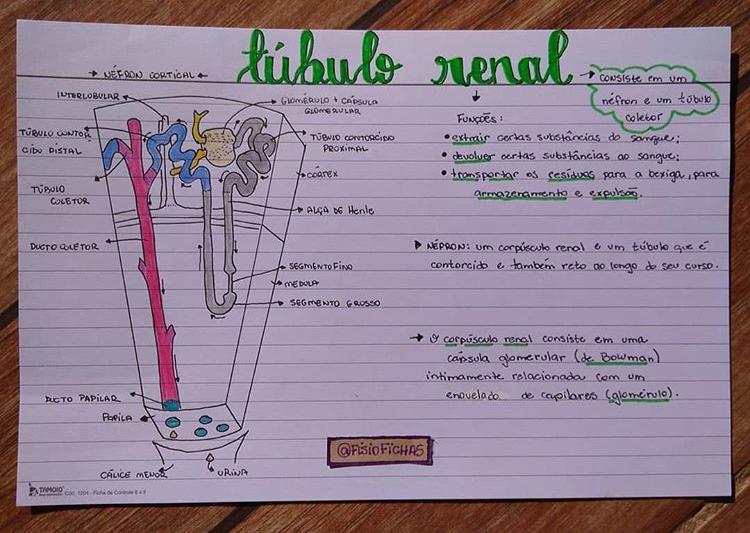 túbulo renal
→ consiste em um
néfron e um túbulo
coletor
→ NÉFRON CORTICAL ←
INTERLOBULAR
GLOMÉRULO + CÁPSULA
GLOMERULAR
TÚBULO CONTOR
CIDO DISTAL
TÚBULO CONTORCIDO
PROXIMAL
CÓRTEX
TÚBULO
COLETOR
ALÇA DE HENLE
DUCTO COLETOR
SEGMENTO FINO
MEDULA
SEGMENTO GROSSO
DUCTO PAPILAR
PAPILA
CÁLICE MENOR
URINA
FUNÇÕES:
• extrair certas substâncias do sangue;
• devolver certas substâncias ao sangue;
• transportar os resíduos para a bexiga, para
armazenamento e expulsão.
▶ NÉFRON: um corpúsculo renal e um túbulo que é
contorcido e também reto ao longo do seu curso.
→ O corpúsculo renal consiste em uma
cápsula glomerular (de Bowman)
intimamente relacionada com um
enovelado de capilares (glomérulo).
@FISIOFICHAS
TAMOIO
Cód. 1204 - Ficha de Controle 6 x 9